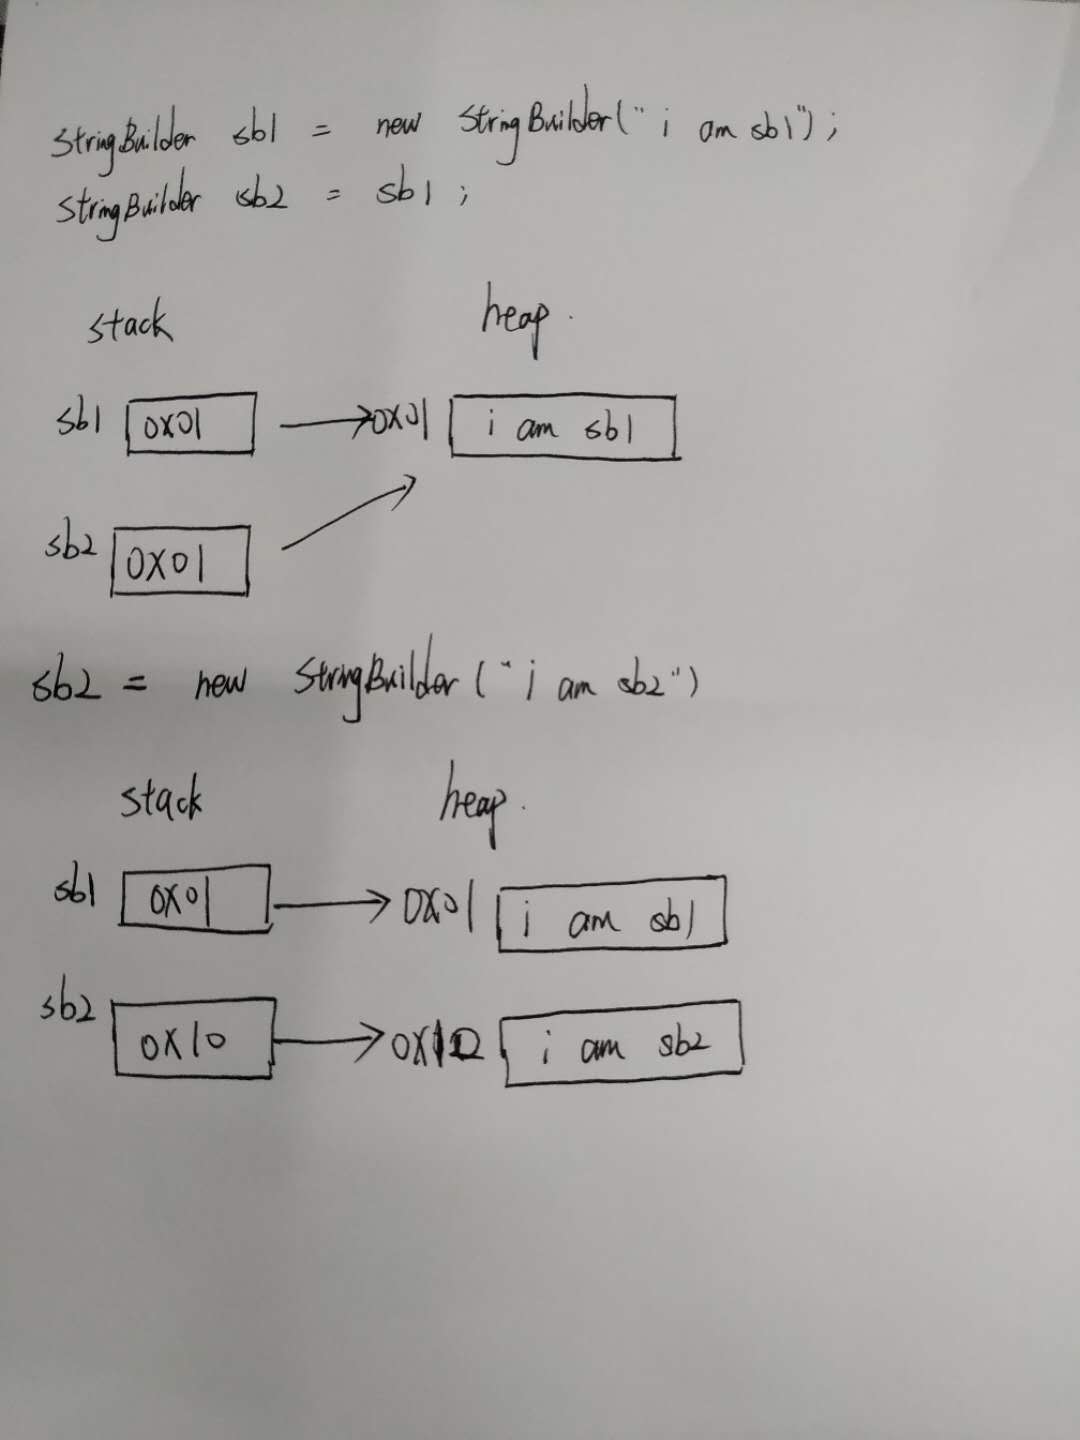 StringBuilder sb1 = new StringBuilder("i am sb1");
StringBuilder sb2 = sb1;
stack heap.
sb1 0x01 0x01 i am sb1
sb2 0x01
sb2 = new StringBuilder("i am sb2")
stack heap.
sb1 0x01 0x01 i am sb1
sb2 0x10 0x10 i am sb2